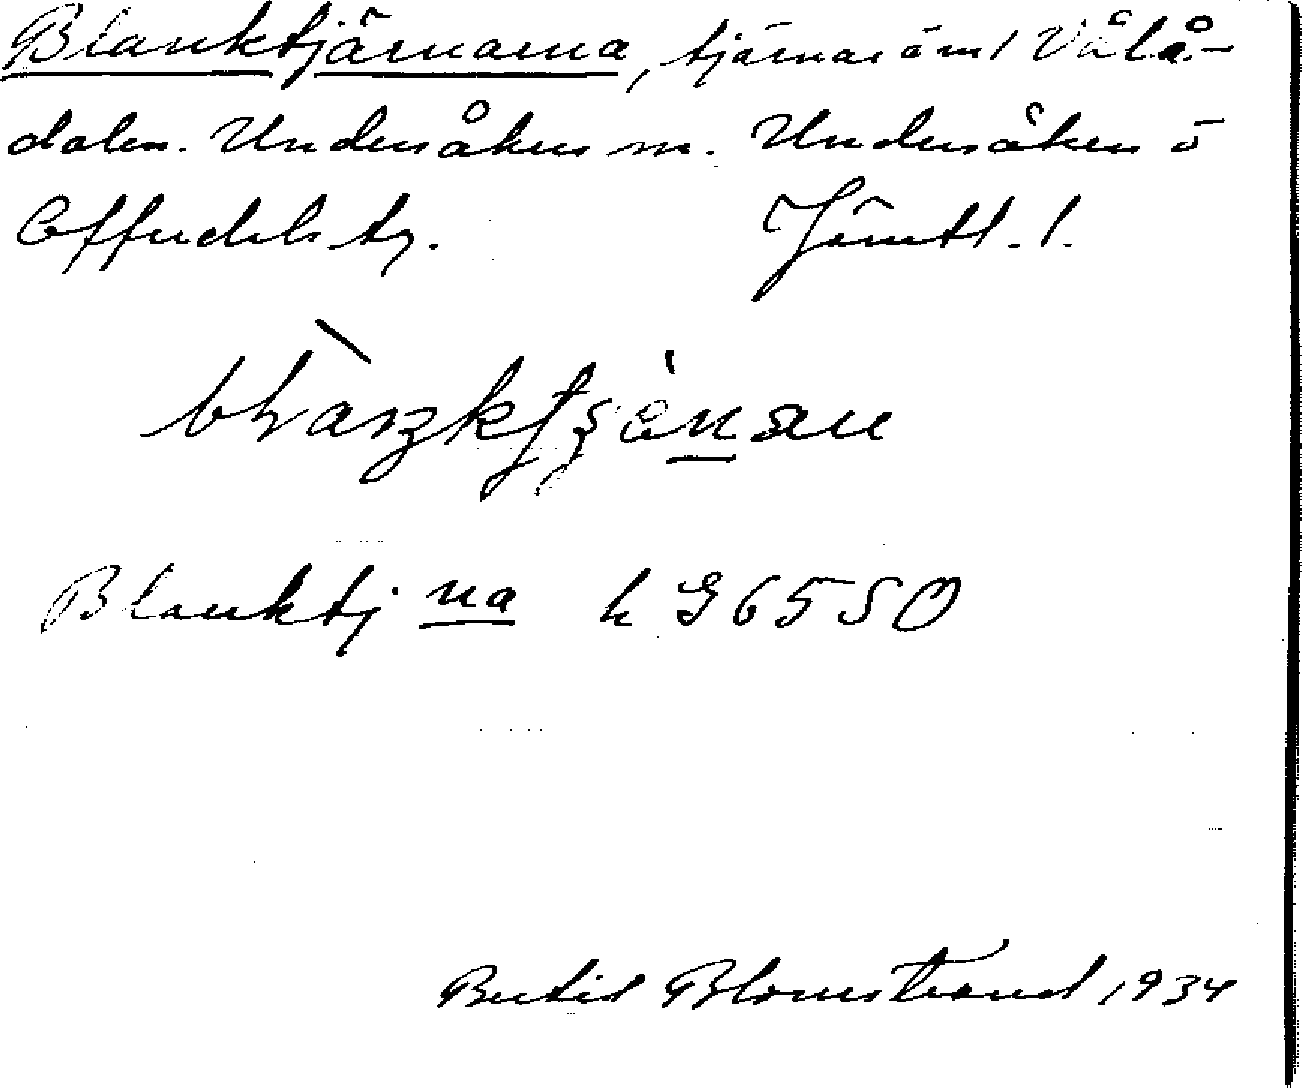 Blanktjärnarna, tjärnar öm/ Vålå-
dalen. Undersåkers sn. Undersåkers o
Offerdals tg. Jämtl. l.
Blanktj na k G 6550
Bertil Blomstrand 1934